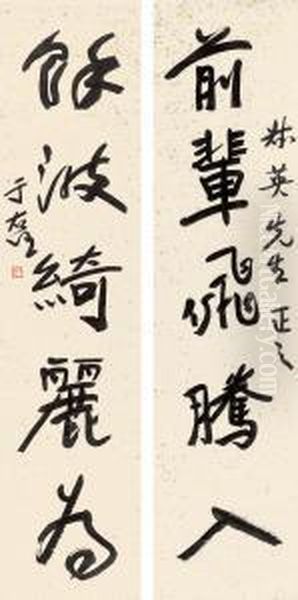 前輩飛騰入
林英先生正之
餘波綺麗為
于右任